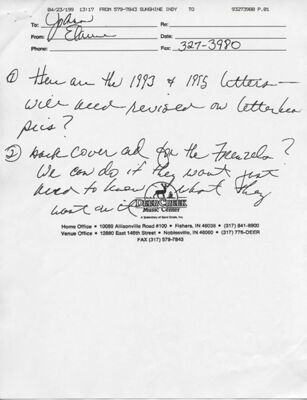 04/23/199 13:17 FROM 579-7843 SUNSHINE INDY TO 93273980 P.01
To: John
From: Elaine
Phone: Fax: 327-3980
① Here are the 1993 & 1995 letters—
will need revised on letterhea
pis?
② back cover ad for the Frenzels?
We can do if they want just
need to know what they
want on it
DEER CREEK
Music Center
Home Office • 10089 Allisonville Road #100 • Fishers, IN 46038 • (317) 841-8900
Venue Office • 12880 East 146th Street • Noblesville, IN 46060 • (317) 776-DEER
FAX (317) 579-7843